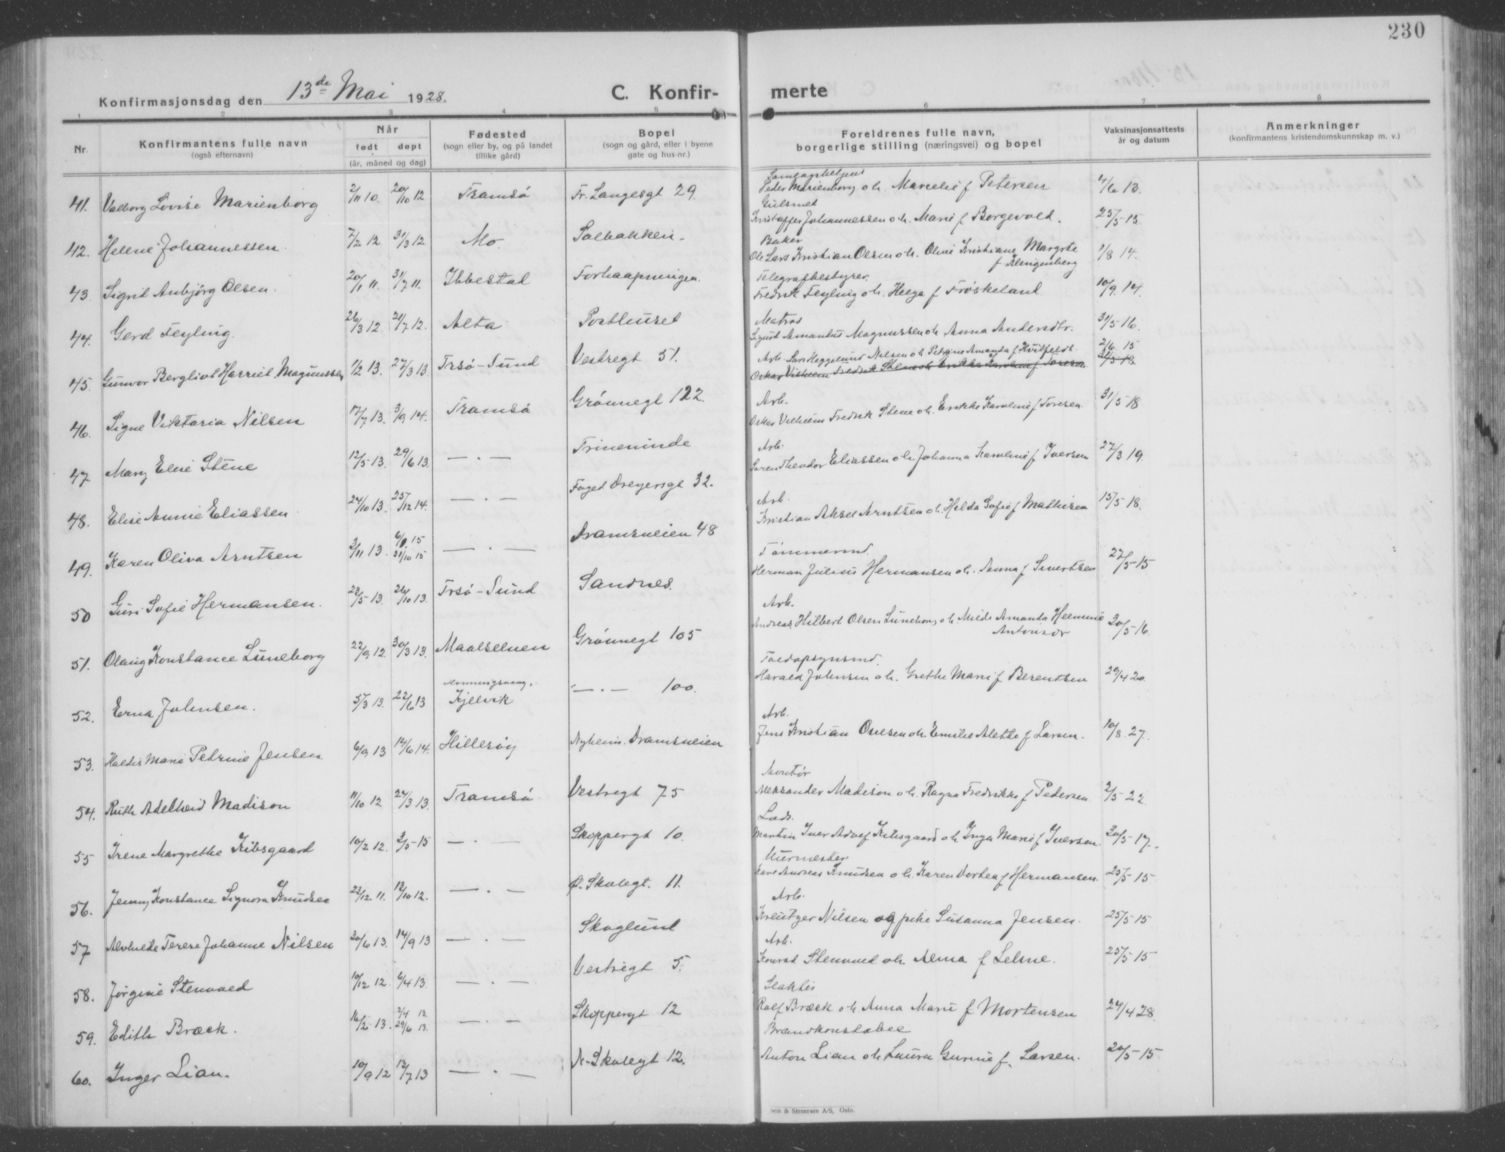 230
Konfirmasjonsdag den 13de Mai 1928.
C. Konfir-
merte
1 2 3 4 5 6 7 8
Nr.
Konfirmantens fulle navn
(også efternavn)
Når
født døpt
(år, måned og dag)
Fødested
(sogn eller by, og på landet
tillike gård)
Bopel
(sogn og gård, eller i byene
gate og hus-nr.)
Foreldrenes fulle navn,
borgerlige stilling (næringsvei) og bopel
Vaksinasjonsattests
år og datum
Anmerkninger
(konfirmantens kristendomskunnskap m. v.)
41. Valborg Lovise Marienborg 2/11 10 20/10 12 Tromsø Fr. Langesgt 29 Peder Marienborg o h. Marselie f Petersen 4/6 13.
Gulsmed
42. Helene Johannessen. 7/2 12 31/3 12 Mo. Solbakken. Kristoffer Johannessen o h. Marie f Borgevold. 25/5 15
Baker
43. Sigrid Anbjørg Olsen. 20/1 11. 31/7 11. Ibbestad Forhaapningen Ole Lars Kristian Olsen o h. Oline Kristiane Margrete f Klengenberg 1/8 14.
Telegrafbestyrer
44. Gerd Feyling. 26/3 12 21/7 12. Alta Posthuset Fredrik Feyling o h. Helga f Frøskeland 10/9 14.
Matros
45. Gunvor Bergliot Harriet Magnussen 1/2 13. 27/3 13 Trsø-Sund Vestregt 51. Sigurd Armantus Magnussen o h Anna Andersdtr. 31/5 16.
46. Signe Viktoria Nilsen 17/7 13. 3/9 14. Tromsø Grønnegt 122 Arb. Lars Heggelund Nilsen o h Petrine Amanda f Hvidfeldt 2/6 15
Arb.
47 Mary Elise Stene 12/5 13. 29/6 13. — . — Trineminde Oskar Vilhelm Fredrik Stene o h. Enrikke Karoline f Toresen 31/5 18
Arb.
48. Elise Annie Eliassen 24/10 13. 25/12 14. — . — Foged Dreyersgt 32. Søren Theodor Eliassen o h. Johanna Karoline f Iversen 27/3 19.
Arb.
49. Karen Oliva Arntsen 2/11 13 31/10 15 — . — Dramsveien 48 Kristian Aksel Arntsen o h. Hilda Sofie f Mathisen 15/5 18.
Tømmermd.
50 Guri Sofie Hermansen. 28/5 13. 26/10 13. Trsø-Sund Sandnes. Herman Julius Hermansen o h. Anna f Sivertsen 27/5 15
Arb.
51. Olaug Konstance Luneborg 22/9 12 30/3 13. Maalselven Grønnegt 105 Andreas Hilbert Olsen Luneborg o h Milde Amanda Hermine Antonsdr 30/5 16.
52. Erna Johnsen. 5/3 13. 22/6 13 Kjelvik — . — 100. Harald Johnsen o h. Grethe Marie f Berentsen 29/4 20.
Arb.
53. Haldis Marie Petrine Jensen 6/9 13 14/6 14. Hillesøy Nyheim. Dramsveien Jens Kristian Olsen o h. Emilie Alette f Larsen. 10/8 27.
Montør
54. Ruth Adelheid Madison 11/10 12 24/3 13. Tromsø Vestregt 75 Aleksander Madison o h Ragna Fredrikke f Pedersen 2/5 22
55 Irene Margrethe Kibsgaard 10/2 12. 2/5 15 — . — Skippergt 10. Martin Iver Adolf Kibsgaard o h Inga Marie f Iversen. 30/5 17.
Murmester
56. Jenny Konstance Signora Knudsen 22/12 11. 12/10 12. — . — Ø. Skolegt. 11. Andreas Knudsen o h. Karen Dortea f Hermansen. 25/5 15
Arb.
57 Alvhilde Terese Johanne Nilsen 20/6 13. 14/9 13 — . — Skoglund Kreutzer Nilsen og pike Susanna Jensen. 25/5 15
Arb.
58. Jørgine Stenvold 10/12 12. 6/4 13. — . — Vestregt 5. Konrad Stenvold o h. Alma f Lelsne. 25/5 15
Slakter
59. Edith Bræck. 16/2 13. 29/6 13. — . — Skippergt 12 Rolf Bræck o h Anna Marie f Mortensen 24/4 28.
Brandkonstabel
60. Inger Lian. 10/9 12 12/7 13 — . — N. Skolegt 12. Anton Lian o h Laura Gurine f. Larsen. 20/5 15.
& Stenersen A/S, Oslo.